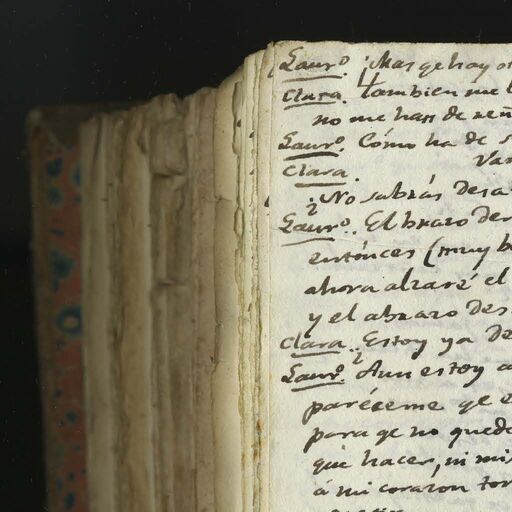 Laurº. ¡Mas qe hay
Clara. También me
no me has de reñ
Laurº. Cómo ha de s
Va
Clara.
¿No sabrás desa
Laurº.. El brazo der
entónces (muy b
ahora alzaré el
y el abrazo des
Clara.. Estoy ya de
Laurº. ¿Aun estoy a
paréceme qe e
para qe no quede
qué hacer, ni mi
á mi corazon tor